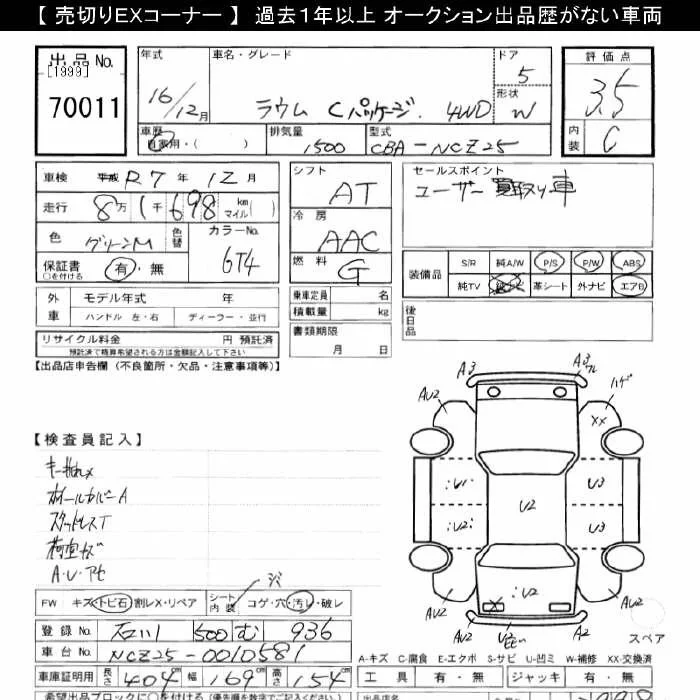 【 売切りEXコーナー 】 過去１年以上 オークション出品歴がない車両
出品 No.
[1999]
70011
年式
16/12月
車名・グレード
ラウム Cパッケージ 4WD
ドア
5
形状
W
評価点
3.5
内装
C
車歴
自家用・( )
排気量
1500
型式
CBA-NCZ25
車検 平成 R7 年 12 月
走行 8万1千698 km マイル( )
色 グリーンM 色替
カラーNo.
6T4
保証書 有・無
○を付ける
外車 モデル年式 年
ハンドル 左・右 ディーラー・並行
リサイクル料金 円 預託済
預託済で精算希望される方は金額記入して下さい
シフト
AT
冷房
AAC
燃料
G
乗車定員 名
積載量 kg
書類期限
月 日
セールスポイント
ユーザー買取り車
装備品 S/R 純A/W P/S P/W ABS
純TV 革シート 外ナビ エアB
後日品
【出品店申告欄 (不良箇所・欠品・注意事項等)】
【検査員記入】
キー擦れメ
ホイールカバーA
スタッドレスT
荷室キズ
A・U・アセ
A3 A3 ワレ
AU2 ハゲ
XX
U1 U3
U2
U2 U3
U2
X
AU2 A2 AU2
スペア
FW キズ・トビ石・割レX・リペア シート内装 コゲ・穴・汚レ・破レ
登録 No. 石川 500 む 936
車台 No. NCZ25-0010581
車庫証明用 長さ 404 cm 幅 169 cm 高さ 154 cm
希望出品ブロックに○を付ける(優先順を数字でご記入ください)
A-キズ C-腐食 E-エクボ S-サビ U-凹ミ W-補修 XX-交換済
工具 有・無 ジャッキ 有・無